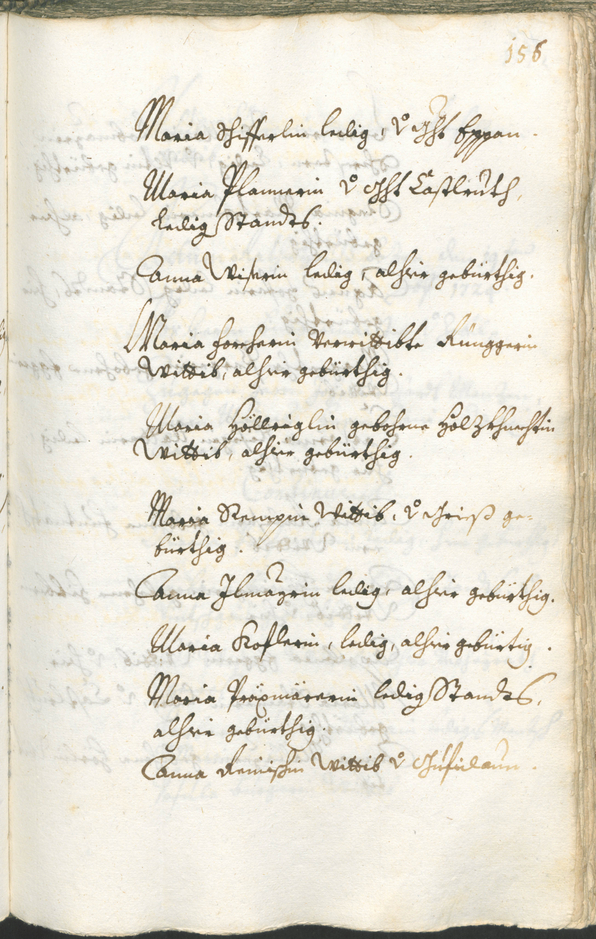 156
Maria Schifferlin ledig, v: Ght Eppan.
Maria Plannerin v: Ght Castlruth,
ledig Standts.
Anna Wiserin ledig, alhier gebürthig.
Maria Forcherin verwittibte Runggerin
Wittib, alhier gebürthig.
Maria Höllriglin gebohrne Holzkhnechtin
Wittib, alhier gebürthig.
Maria Stempin Wittib, v: Grieß ge-
bürthig.
Anna Ilmayrin ledig, alhier gebürthig.
Maria Koflerin, ledig, alhier gebürtig.
Maria Präxmärerin ledig Standts,
alhier gebürthig.
Anna Wittib v: Gufidaun.